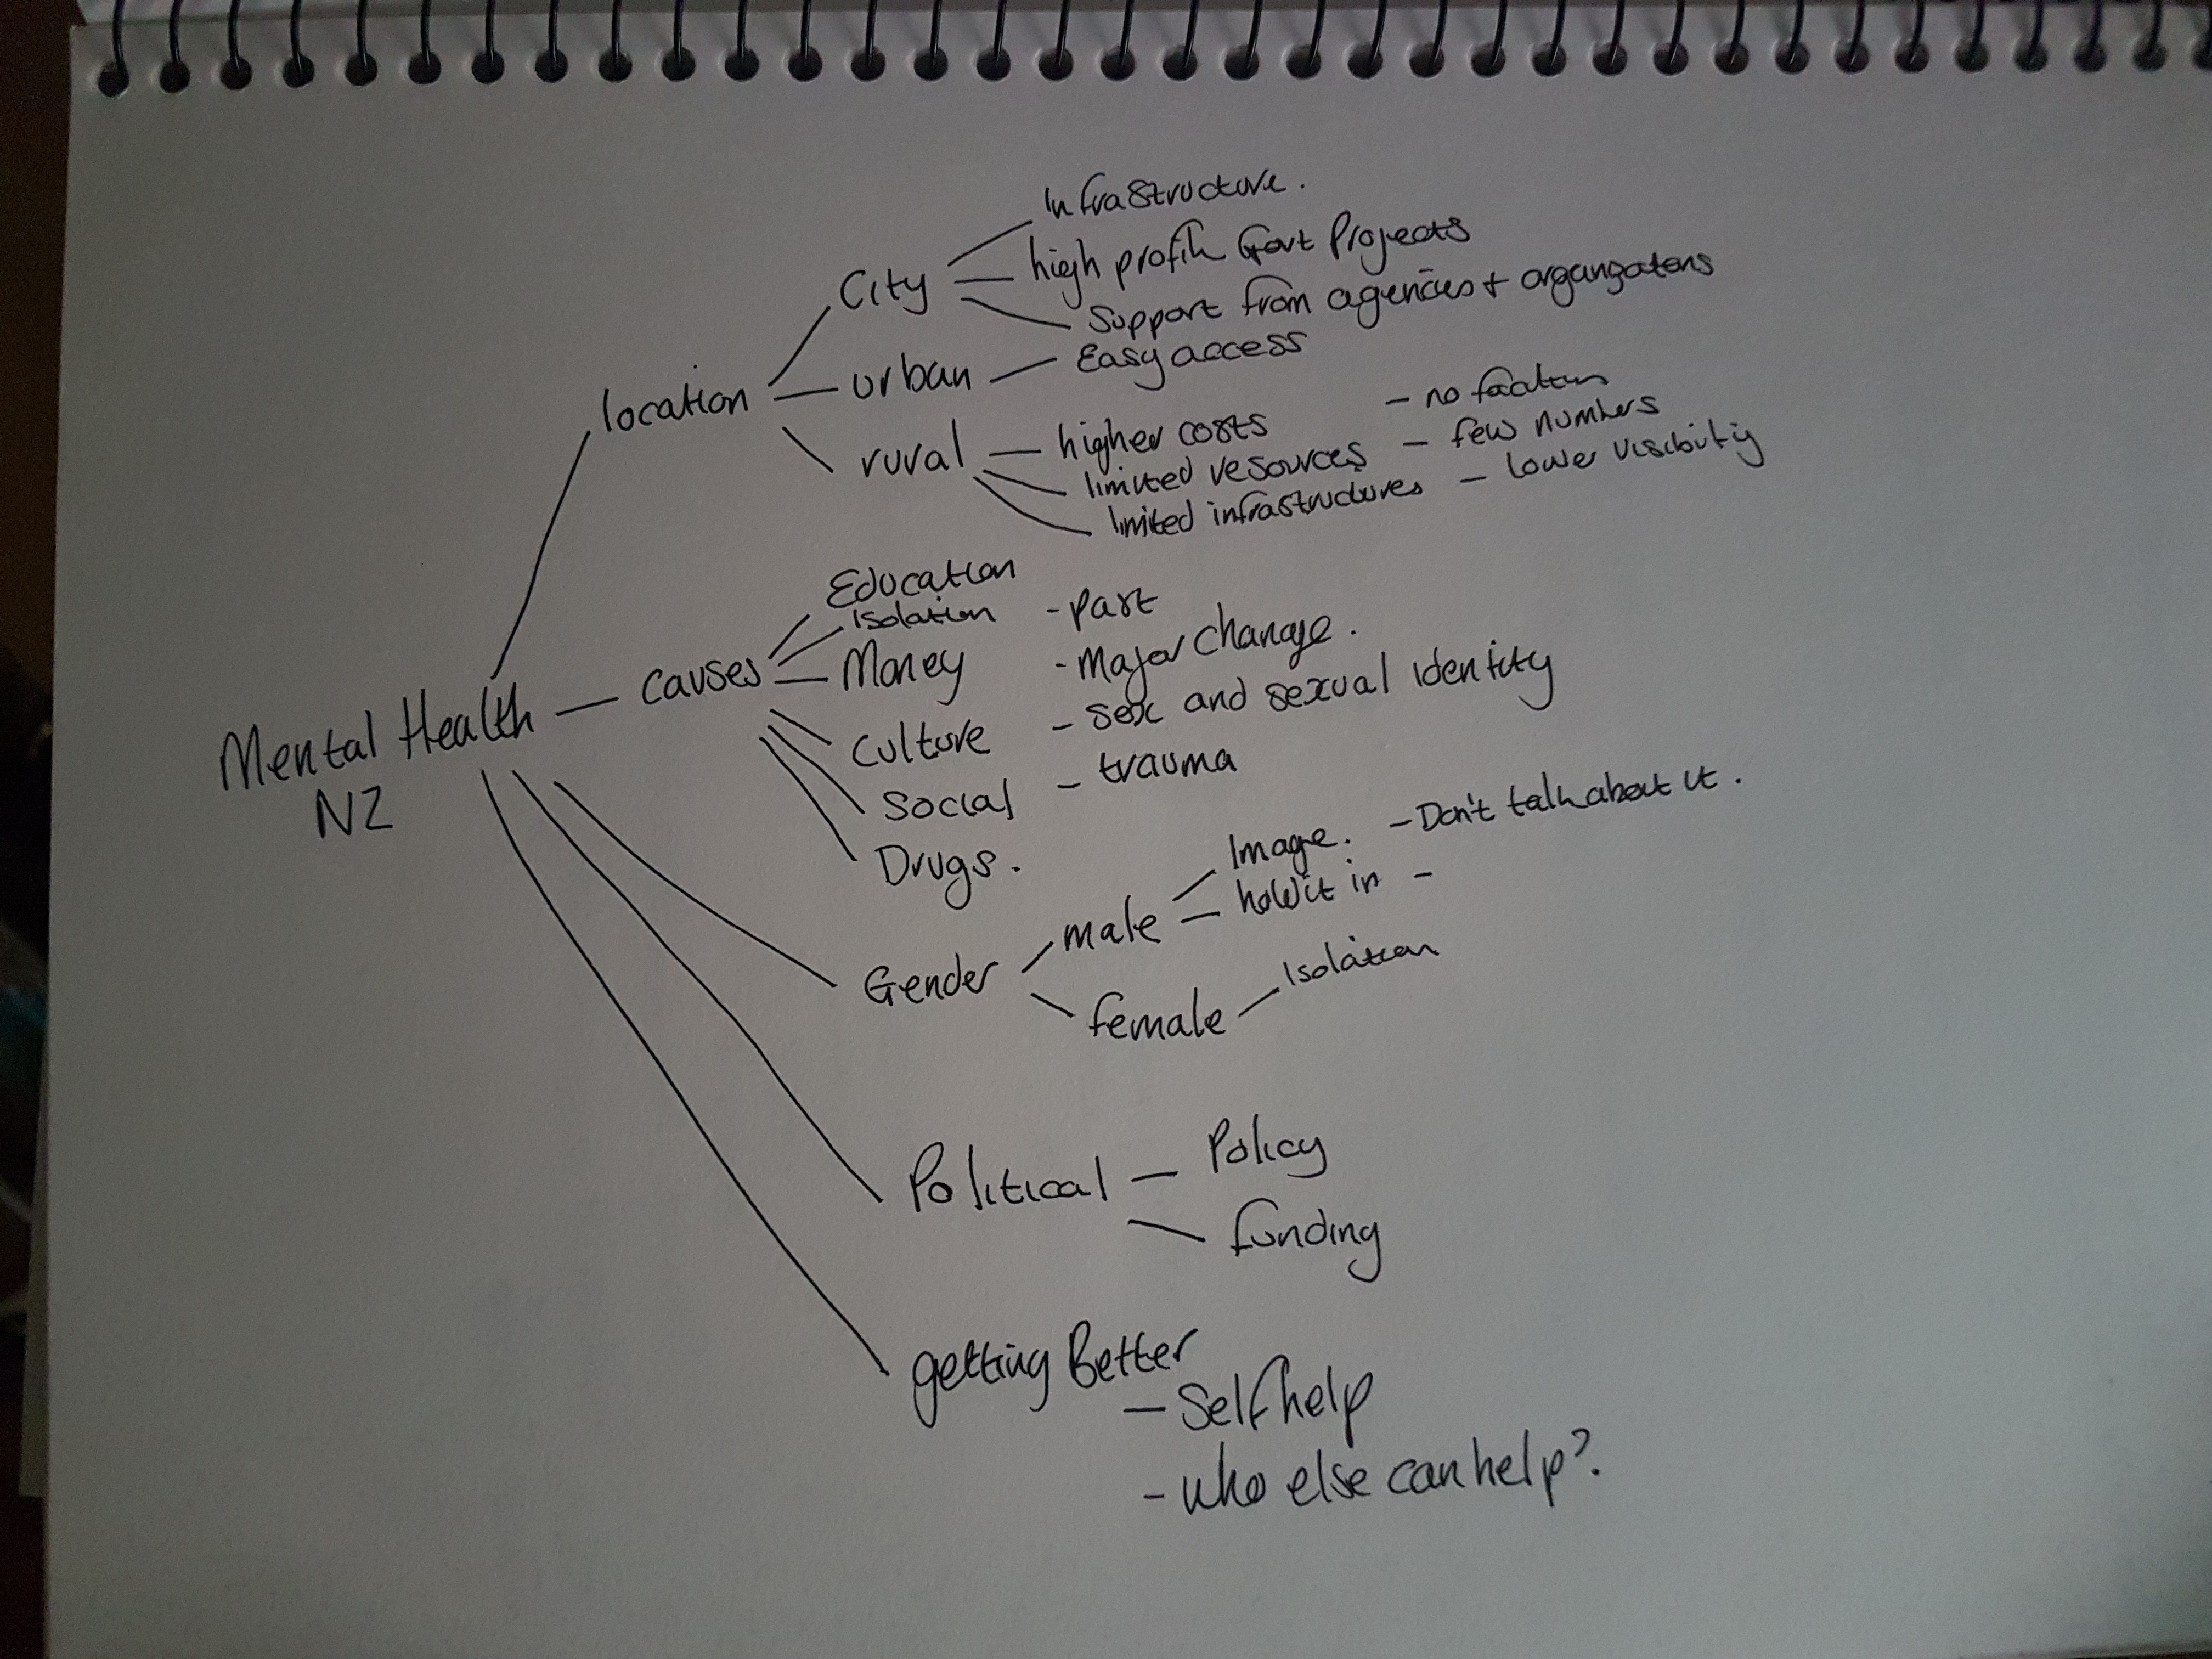 Infrastructure.
high profile Govt Projects
City
Support from agencies + organizations
urban
Easy access
location
- no
rural
higher costs
- few numbers
limited resources
- lower visibility
limited infrastructures
Education
Isolation
- past
causes
Money
- Major change.
Culture
- sex and sexual identity
Social
- trauma
Drugs.
Mental Health
NZ
Image.
- Don't talk about it.
male
hold it in -
Gender
Isolation
female
Political
Policy
funding
getting Better
- Self help
- who else can help?